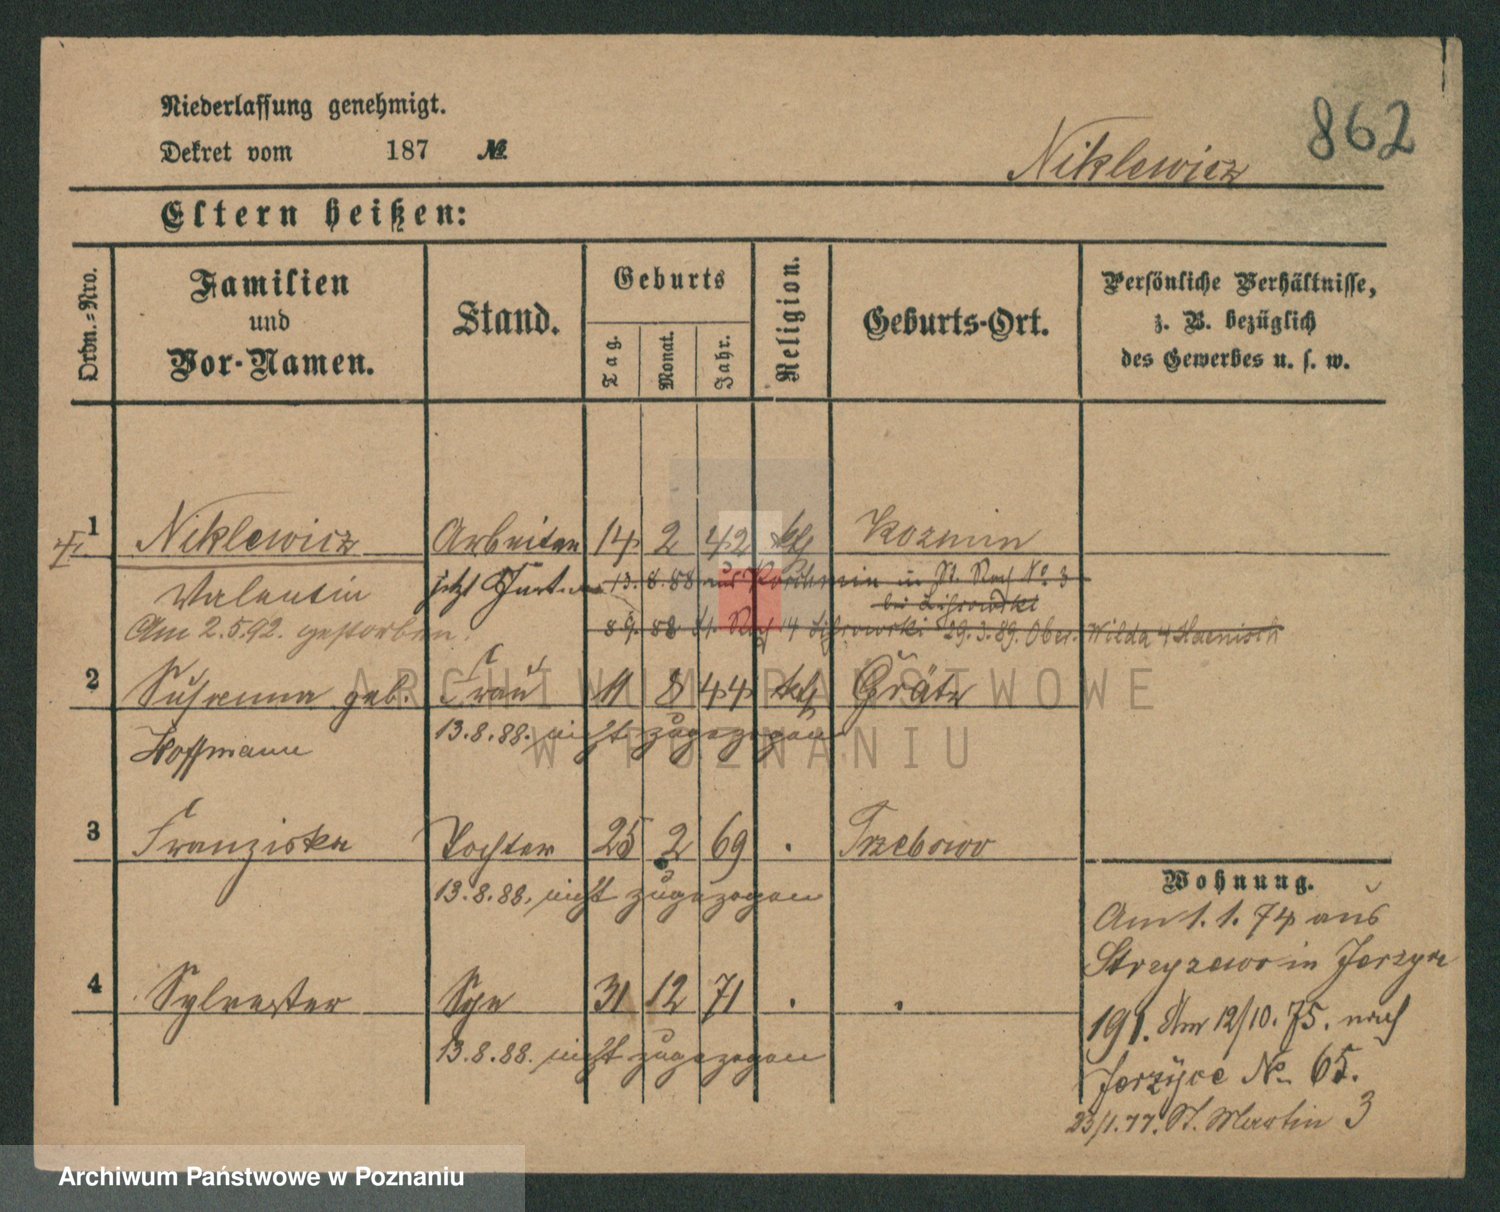 862
Niederlassung genehmigt.
Dekret vom 187 №.
Niklewicz
Eltern heißen:
Ordn.-Nro.
Familien
und
Vor-Namen.
Stand.
Geburts
Tag.
Monat.
Jahr.
Religion.
Geburts-Ort.
Persönliche Verhältnisse,
z. B. bezüglich
des Gewerbes u. s. w.
1 Niklewicz Arbeiter 14 2 42 kth Kozmin
Valentin jetzt 13.8.88 aus in St. Roch No. 3
bei
Am 2.5.92. gestorben. 8 9. 88 St. Roch 14 29.3.89. Ober. Wilda 4 Haenisch
2 Susanna geb. Frau 11 8 44 kth Grätz
Hoffmann 13.8.88. nicht zugezogen
3 Franziska Tochter 25 2 69 . Trzebowo
13.8.88. nicht zugezogen
4 Sylvester Sohn 31 12 71 . .
13.8.88. nicht zugezogen
Wohnung.
Am 1.1.74 aus
in Jerzyce
191. Am 12/10.75. nach
Jerzyce No 65.
23/1.77. St. Martin 3
ARCHIWUM PAŃSTWOWE
W POZNANIU
Archiwum Państwowe w Poznaniu